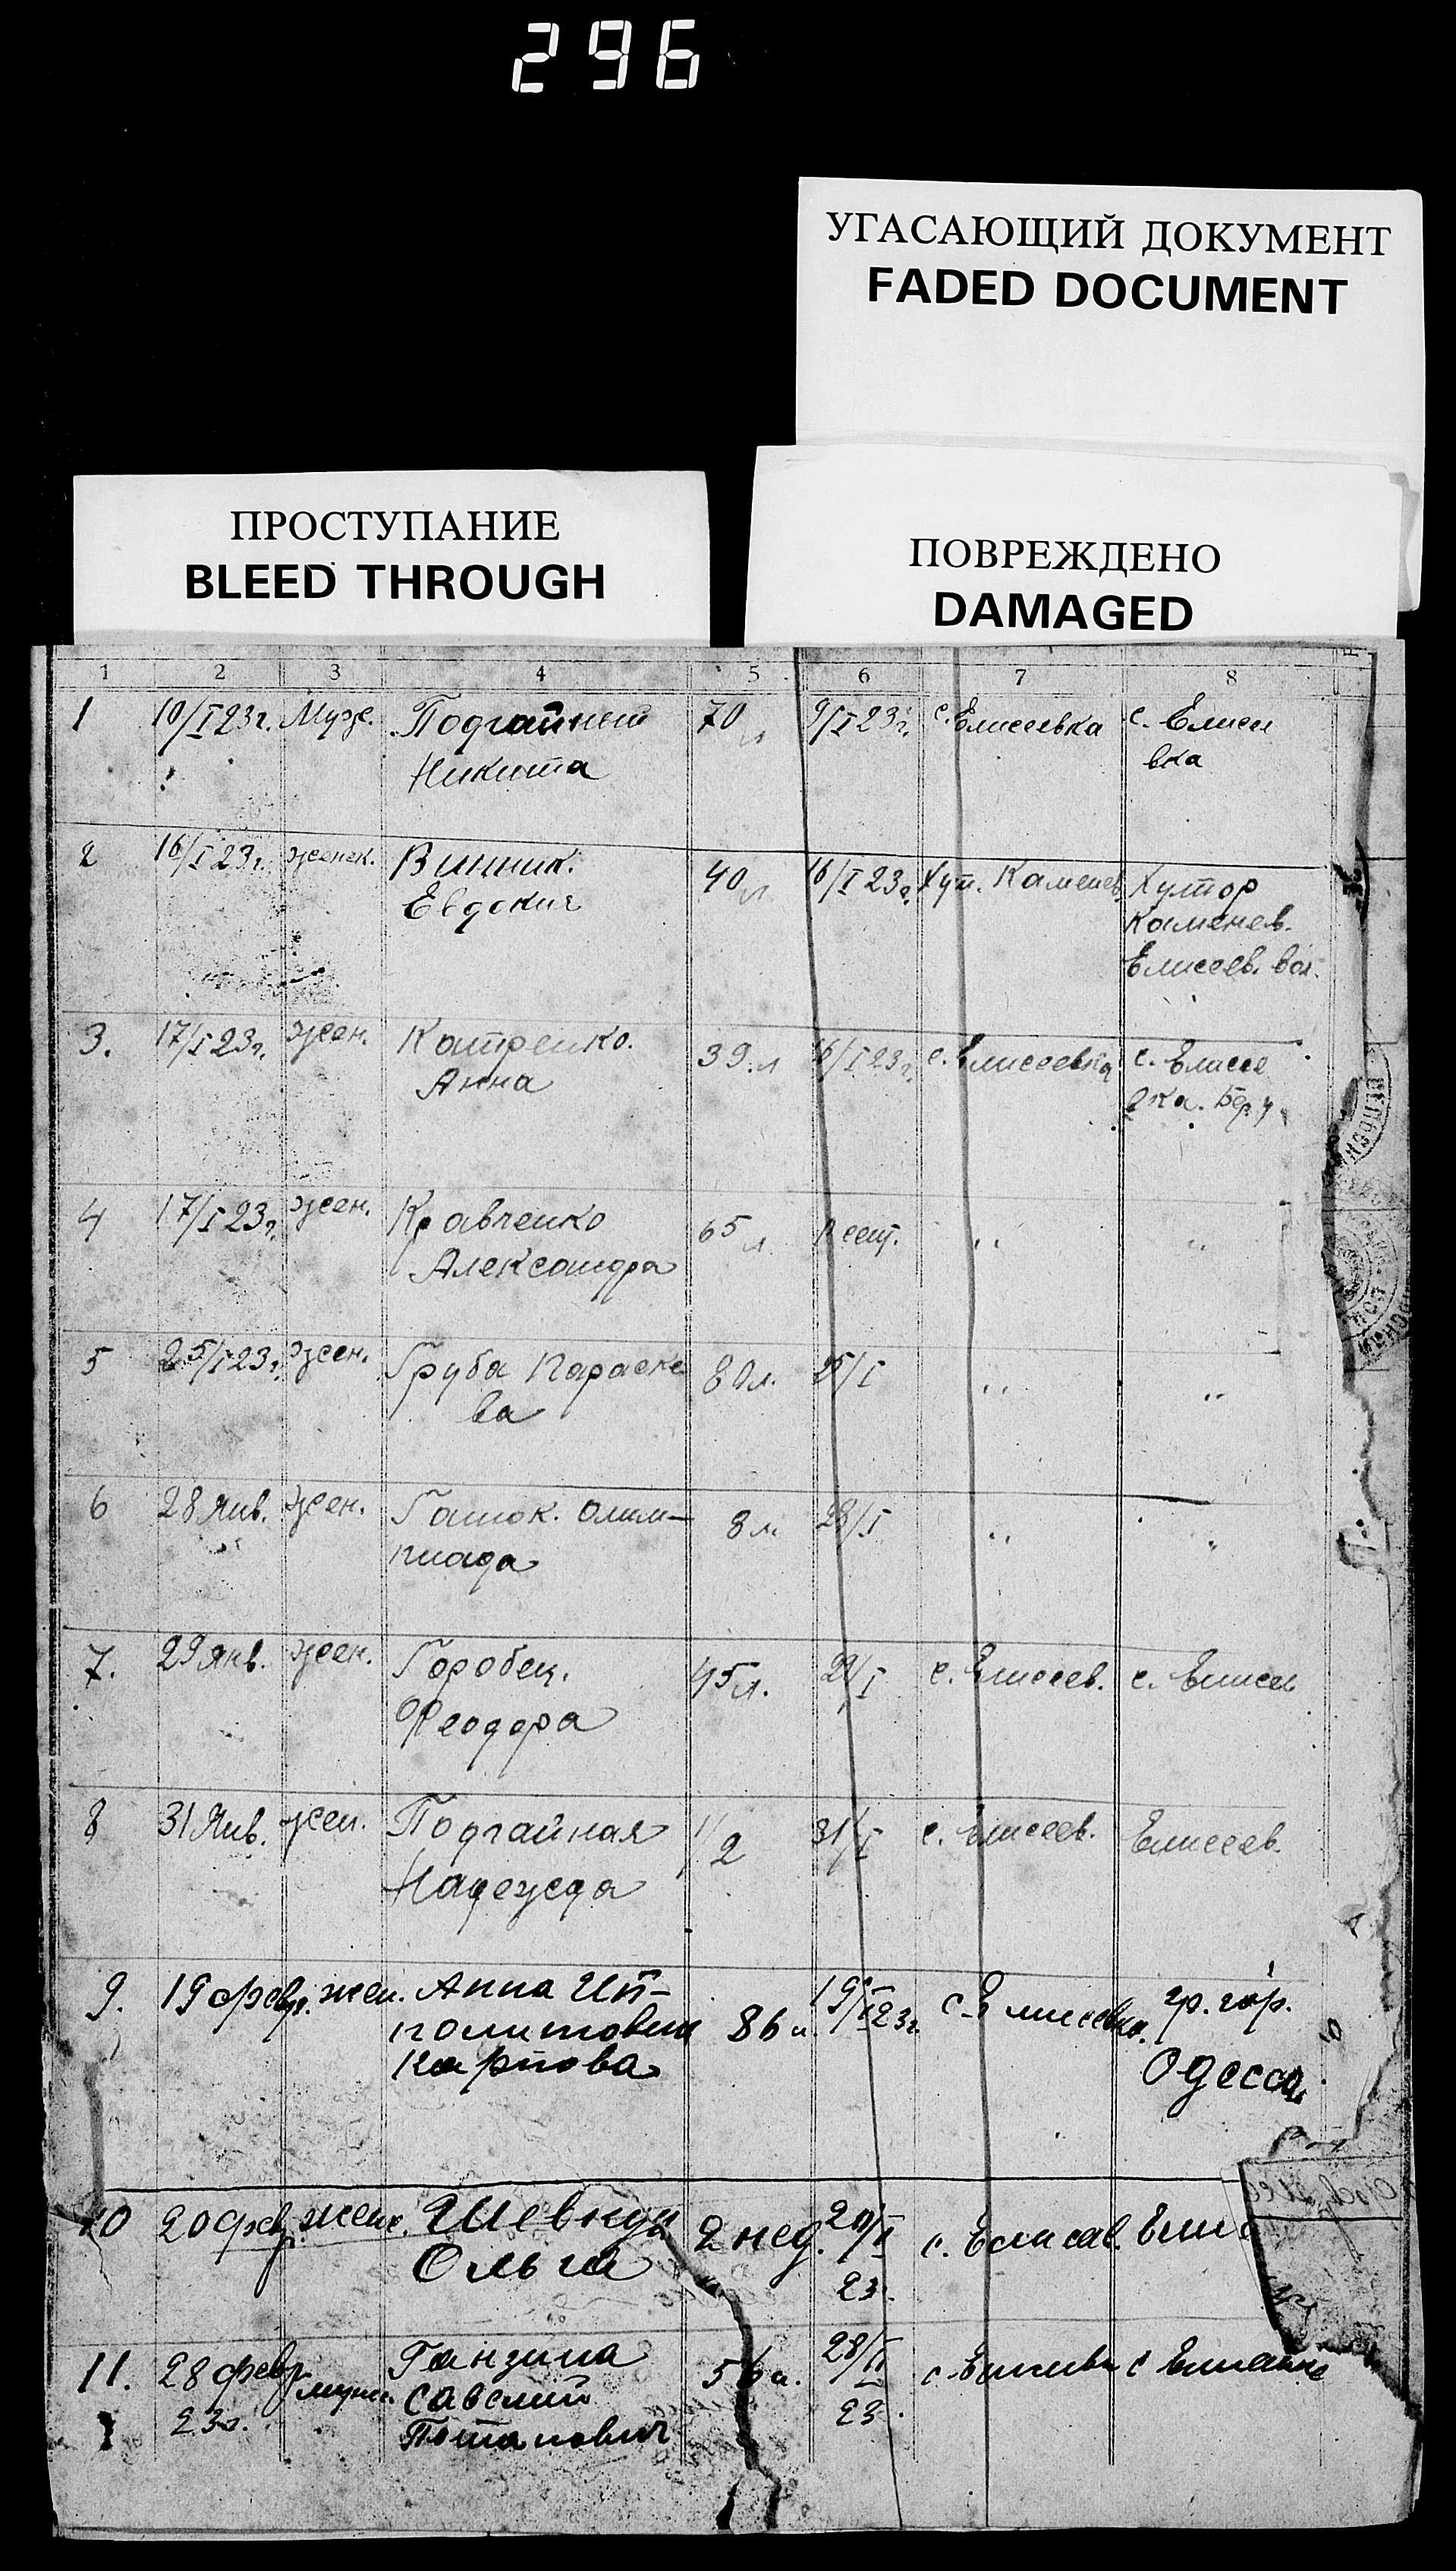 296
УГАСАЮЩИЙ ДОКУМЕНТ
FADED DOCUMENT
ПРОСТУПАНИЕ
BLEED THROUGH
ПОВРЕЖДЕНО
DAMAGED
1 2 3 4 5 6 7 8
1 10/I 23г. Муж. Подгайный 70 л 9/I 23г. с. Елисеевка с. Елисе
Никита вка
2 16/I 23г. женск. Винник. 40 л 16/I 23г. Хут. Каменев. Хутор
Евдокия Каменев.
Елисеев. вол.
3. 17/I 23г. жен. Катренко. 39. л 16/I 23г. с. Елисеевка с. Елисе
Анна вка.
4 17/I 23г. жен. Кравченко 65 л. ,, ,,
Александра
5 25/I 23г. жен. Груба Параске 80 л. 25/I ,, ,,
ва
6 28 Янв. жен. Олим- 8 м. 28/I ,, ,,
пиада
7. 29 Янв. жен. Горобец. 45 л. 29/I с. Елисеев. с. Елисее
Феодора
8 31 Янв. жен. Подгайная 1/2 31/I с. Елисеев. Елисеев.
Надежда
9. 19 февр. жен. Анна Ип- 86 л. 19/II 23г. с. Елисеевка. гр. гор.
политовна Одесса
Карпова
10 20 фев. жен. Шевкун 2 нед. 20/II с. Елисав. Елис
Ольга 23.
11. 28 февр муж. Ганзина 56 л. 28/II с
23г. Савелий 23.
Потапович